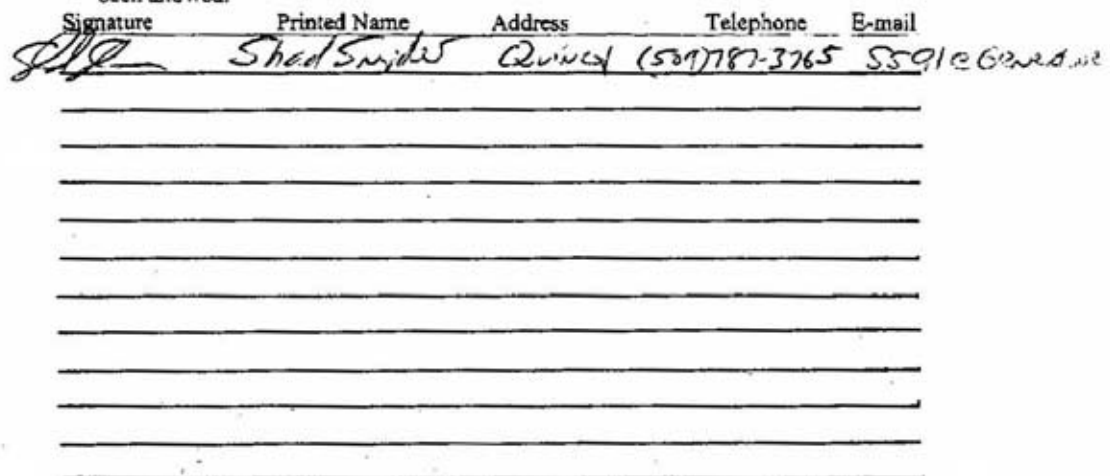 Signature Printed Name Address Telephone E-mail
Shad Snider Quincy (509)787-3765